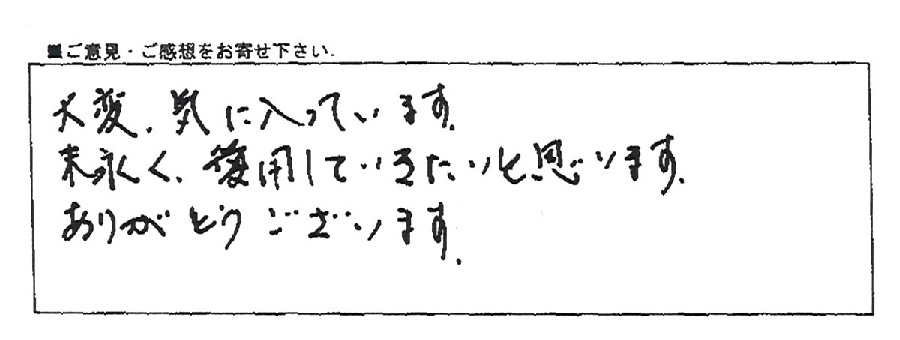 ■ご意見・ご感想をお寄せ下さい.
大変、気に入っています。
末永く、愛用していきたいと思います。
ありがとうございます。